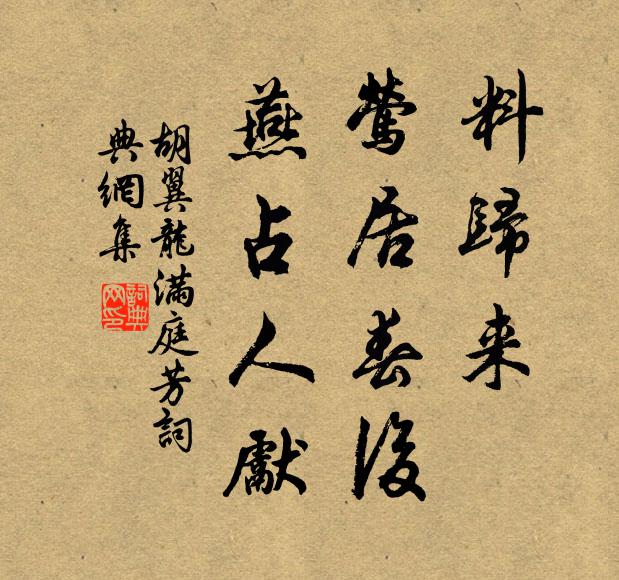 料歸来
鶯居春後
燕占人獻
胡翼龍滿庭芳詞
典網集
詞典网印